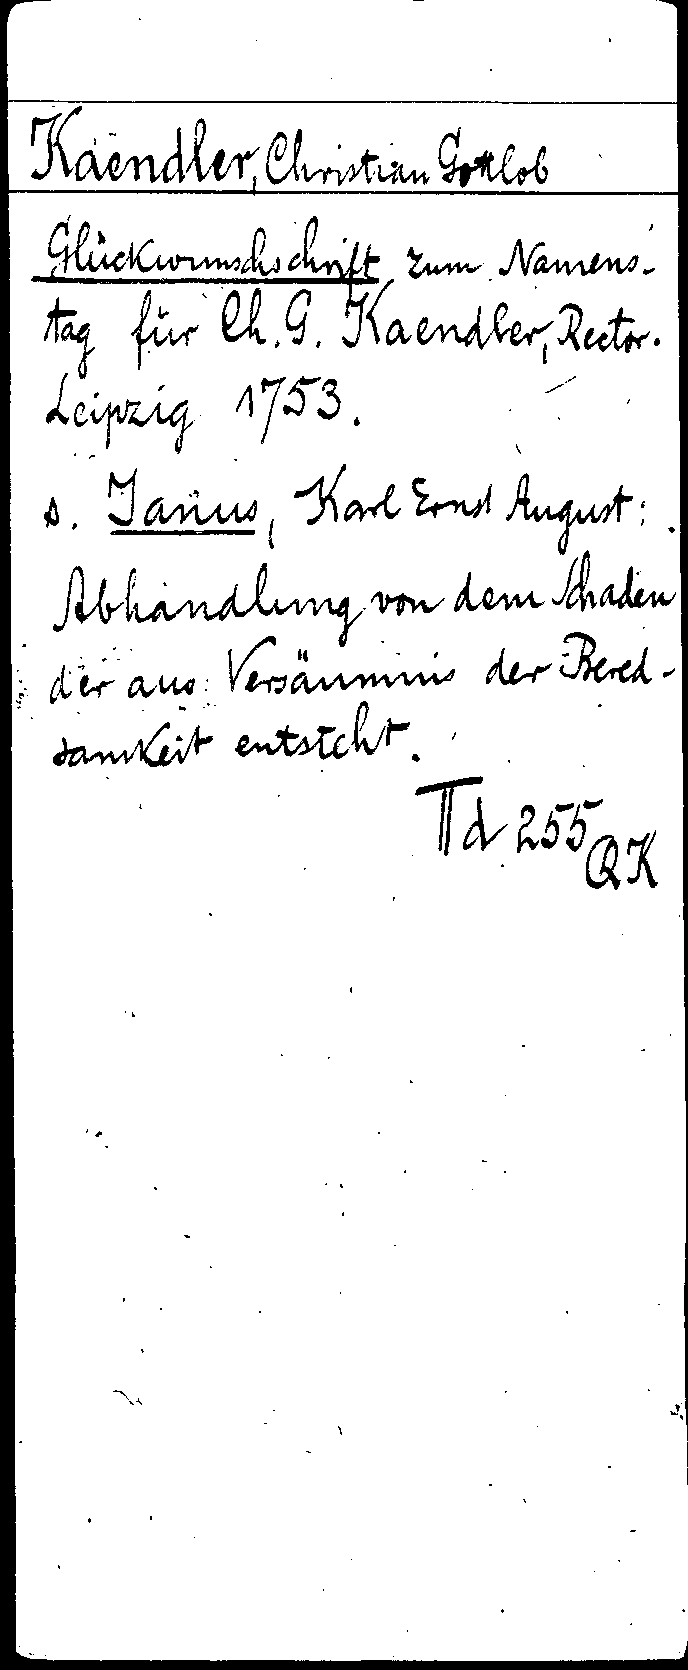 Kaendler, Christian Gottlob
Glückwunschschrift zum Namens-
tag für Ch. G. Kaendler, Rector.
Leipzig 1753.
s. Janus, Karl Ernst August:
Abhandlung von dem Schaden
der aus Versäumnis der Bered-
samkeit entsteht.
IId 255 QK